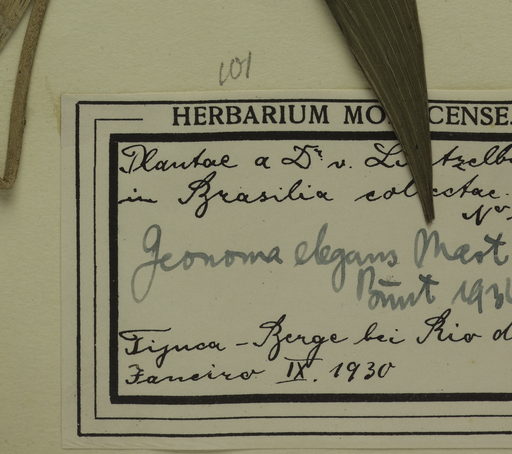 101
HERBARIUM MO CENSE
Plantae a Dr v.
in Brasilia collectae.
No
Geonoma elegans Mart
Burret 193
Tijuca - Berge bei Rio d
Janeiro IX. 1930